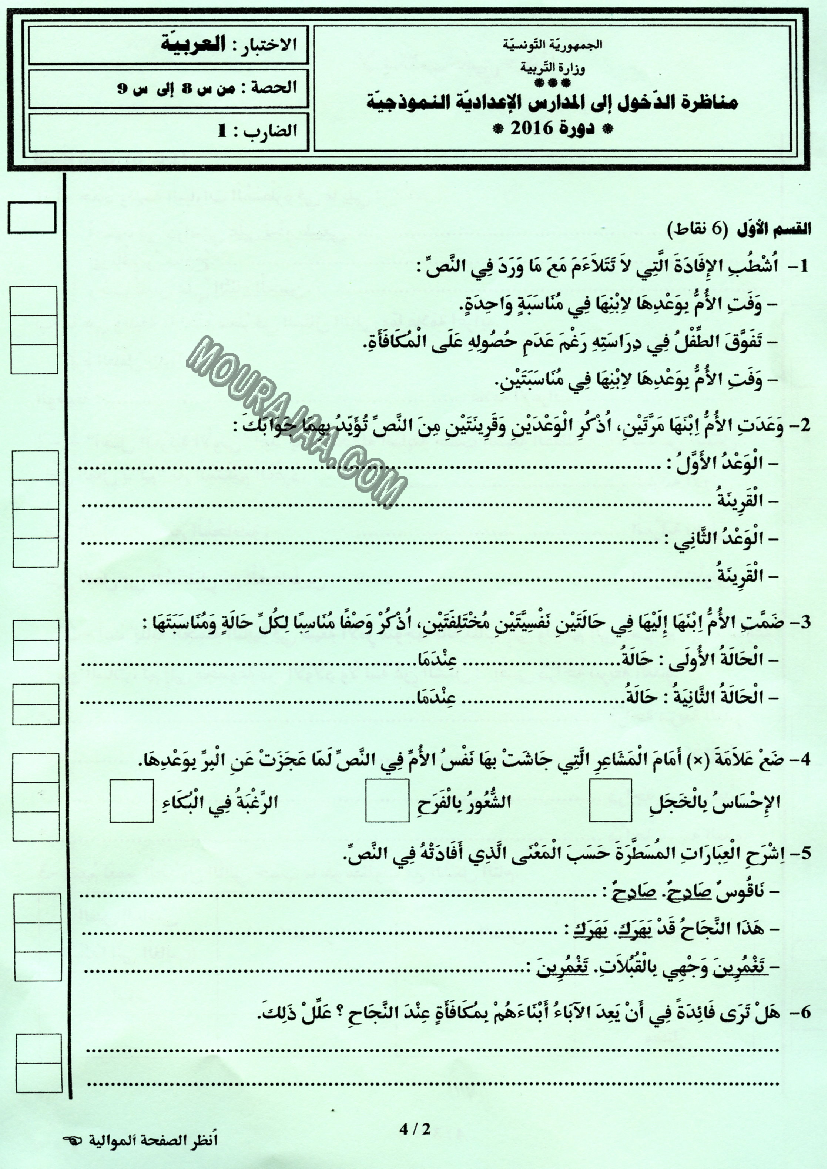 الجمهوريّة التّونسيّة
وزارة التّربية
***
مناظرة الدّخول إلى المدارس الإعداديّة النّموذجيّة
* دورة 2016 *
الاختبار : العربيّة
الحصة : من س 8 إلى س 9
الضارب : 1
القسم الأوّل (6 نقاط)
1- اُشْطُبِ الإِفَادَةَ الَّتِي لاَ تَتَلاَءَمُ مَعَ مَا وَرَدَ فِي النَّصِّ :
– وَفَتِ الأُمُّ بِوَعْدِهَا لاِبْنِهَا فِي مُنَاسَبَةٍ وَاحِدَةٍ.
– تَفَوَّقَ الطِّفْلُ فِي دِرَاسَتِهِ رَغْمَ عَدَمِ حُصُولِهِ عَلَى الْمُكَافَأَةِ.
– وَفَتِ الأُمُّ بِوَعْدِهَا لاِبْنِهَا فِي مُنَاسَبَتَيْنِ.
2- وَعَدَتِ الأُمُّ اِبْنَهَا مَرَّتَيْنِ، اُذْكُرِ الْوَعْدَيْنِ وَقَرِينَتَيْنِ مِنَ النَّصِّ تُؤَيِّدُ بِهِمَا جَوَابَكَ :
– الْوَعْدُ الأَوَّلُ : ........................................
– الْقَرِينَةُ ........................................
– الْوَعْدُ الثَّانِي : ........................................
– الْقَرِينَةُ ........................................
3- ضَمَّتِ الأُمُّ اِبْنَهَا إِلَيْهَا فِي حَالَتَيْنِ نَفْسِيَّتَيْنِ مُخْتَلِفَتَيْنِ، اُذْكُرْ وَصْفًا مُنَاسِبًا لِكُلِّ حَالَةٍ وَمُنَاسَبَتَهَا :
– الْحَالَةُ الأُولَى : حَالَةُ.................... عِنْدَمَا........................................
– الْحَالَةُ الثَّانِيَةُ : حَالَةُ.................... عِنْدَمَا........................................
4- ضَعْ عَلاَمَةَ (×) أَمَامَ الْمَشَاعِرِ الَّتِي جَاشَتْ بِهَا نَفْسُ الأُمِّ فِي النَّصِّ لَمَّا عَجَزَتْ عَنِ الْبِرِّ بِوَعْدِهَا.
الإِحْسَاسُ بِالْخَجَلِ الشُّعُورُ بِالْفَرَحِ الرَّغْبَةُ فِي الْبُكَاءِ
5- اِشْرَحِ الْعِبَارَاتِ المُسَطَّرَةَ حَسَبَ الْمَعْنَى الَّذِي أَفَادَتْهُ فِي النَّصِّ.
– نَاقُوسٌ صَادِحٌ. صَادِحٌ : ........................................
– هَذَا النَّجَاحُ قَدْ بَهَرَكِ. بَهَرَكِ : ........................................
– تَغْمُرِينَ وَجْهِي بِالْقُبُلاَتِ. تَغْمُرِينَ :........................................
6- هَلْ تَرَى فَائِدَةً فِي أَنْ يَعِدَ الآبَاءُ أَبْنَاءَهُمْ بِمُكَافَأَةٍ عِنْدَ النَّجَاحِ ؟ عَلِّلْ ذَلِكَ.
........................................
........................................
4 / 2
اُنظر الصفحة الموالية
MOURAJAA.COM